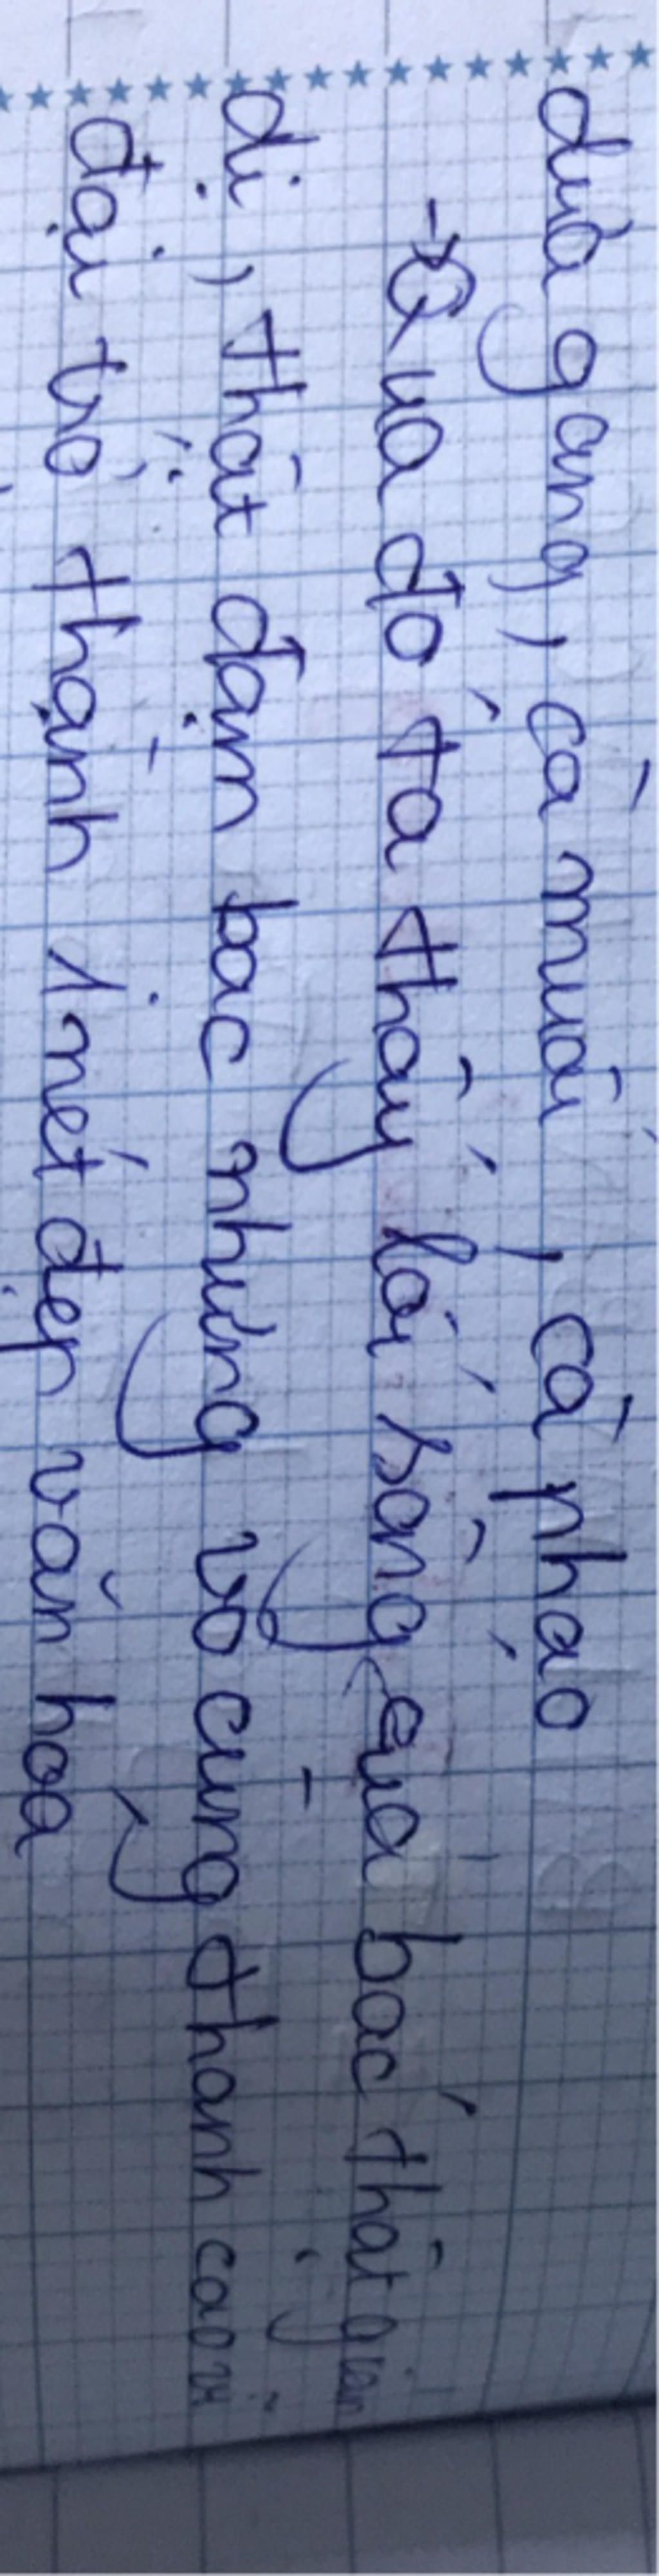 dưa gang, cà muối, cà pháo
-> Qua đó ta thấy lối sống của bác thật giản
dị, thật đạm bạc nhưng vô cùng thanh cao vĩ
đại trở thành 1 nét đẹp văn hoá